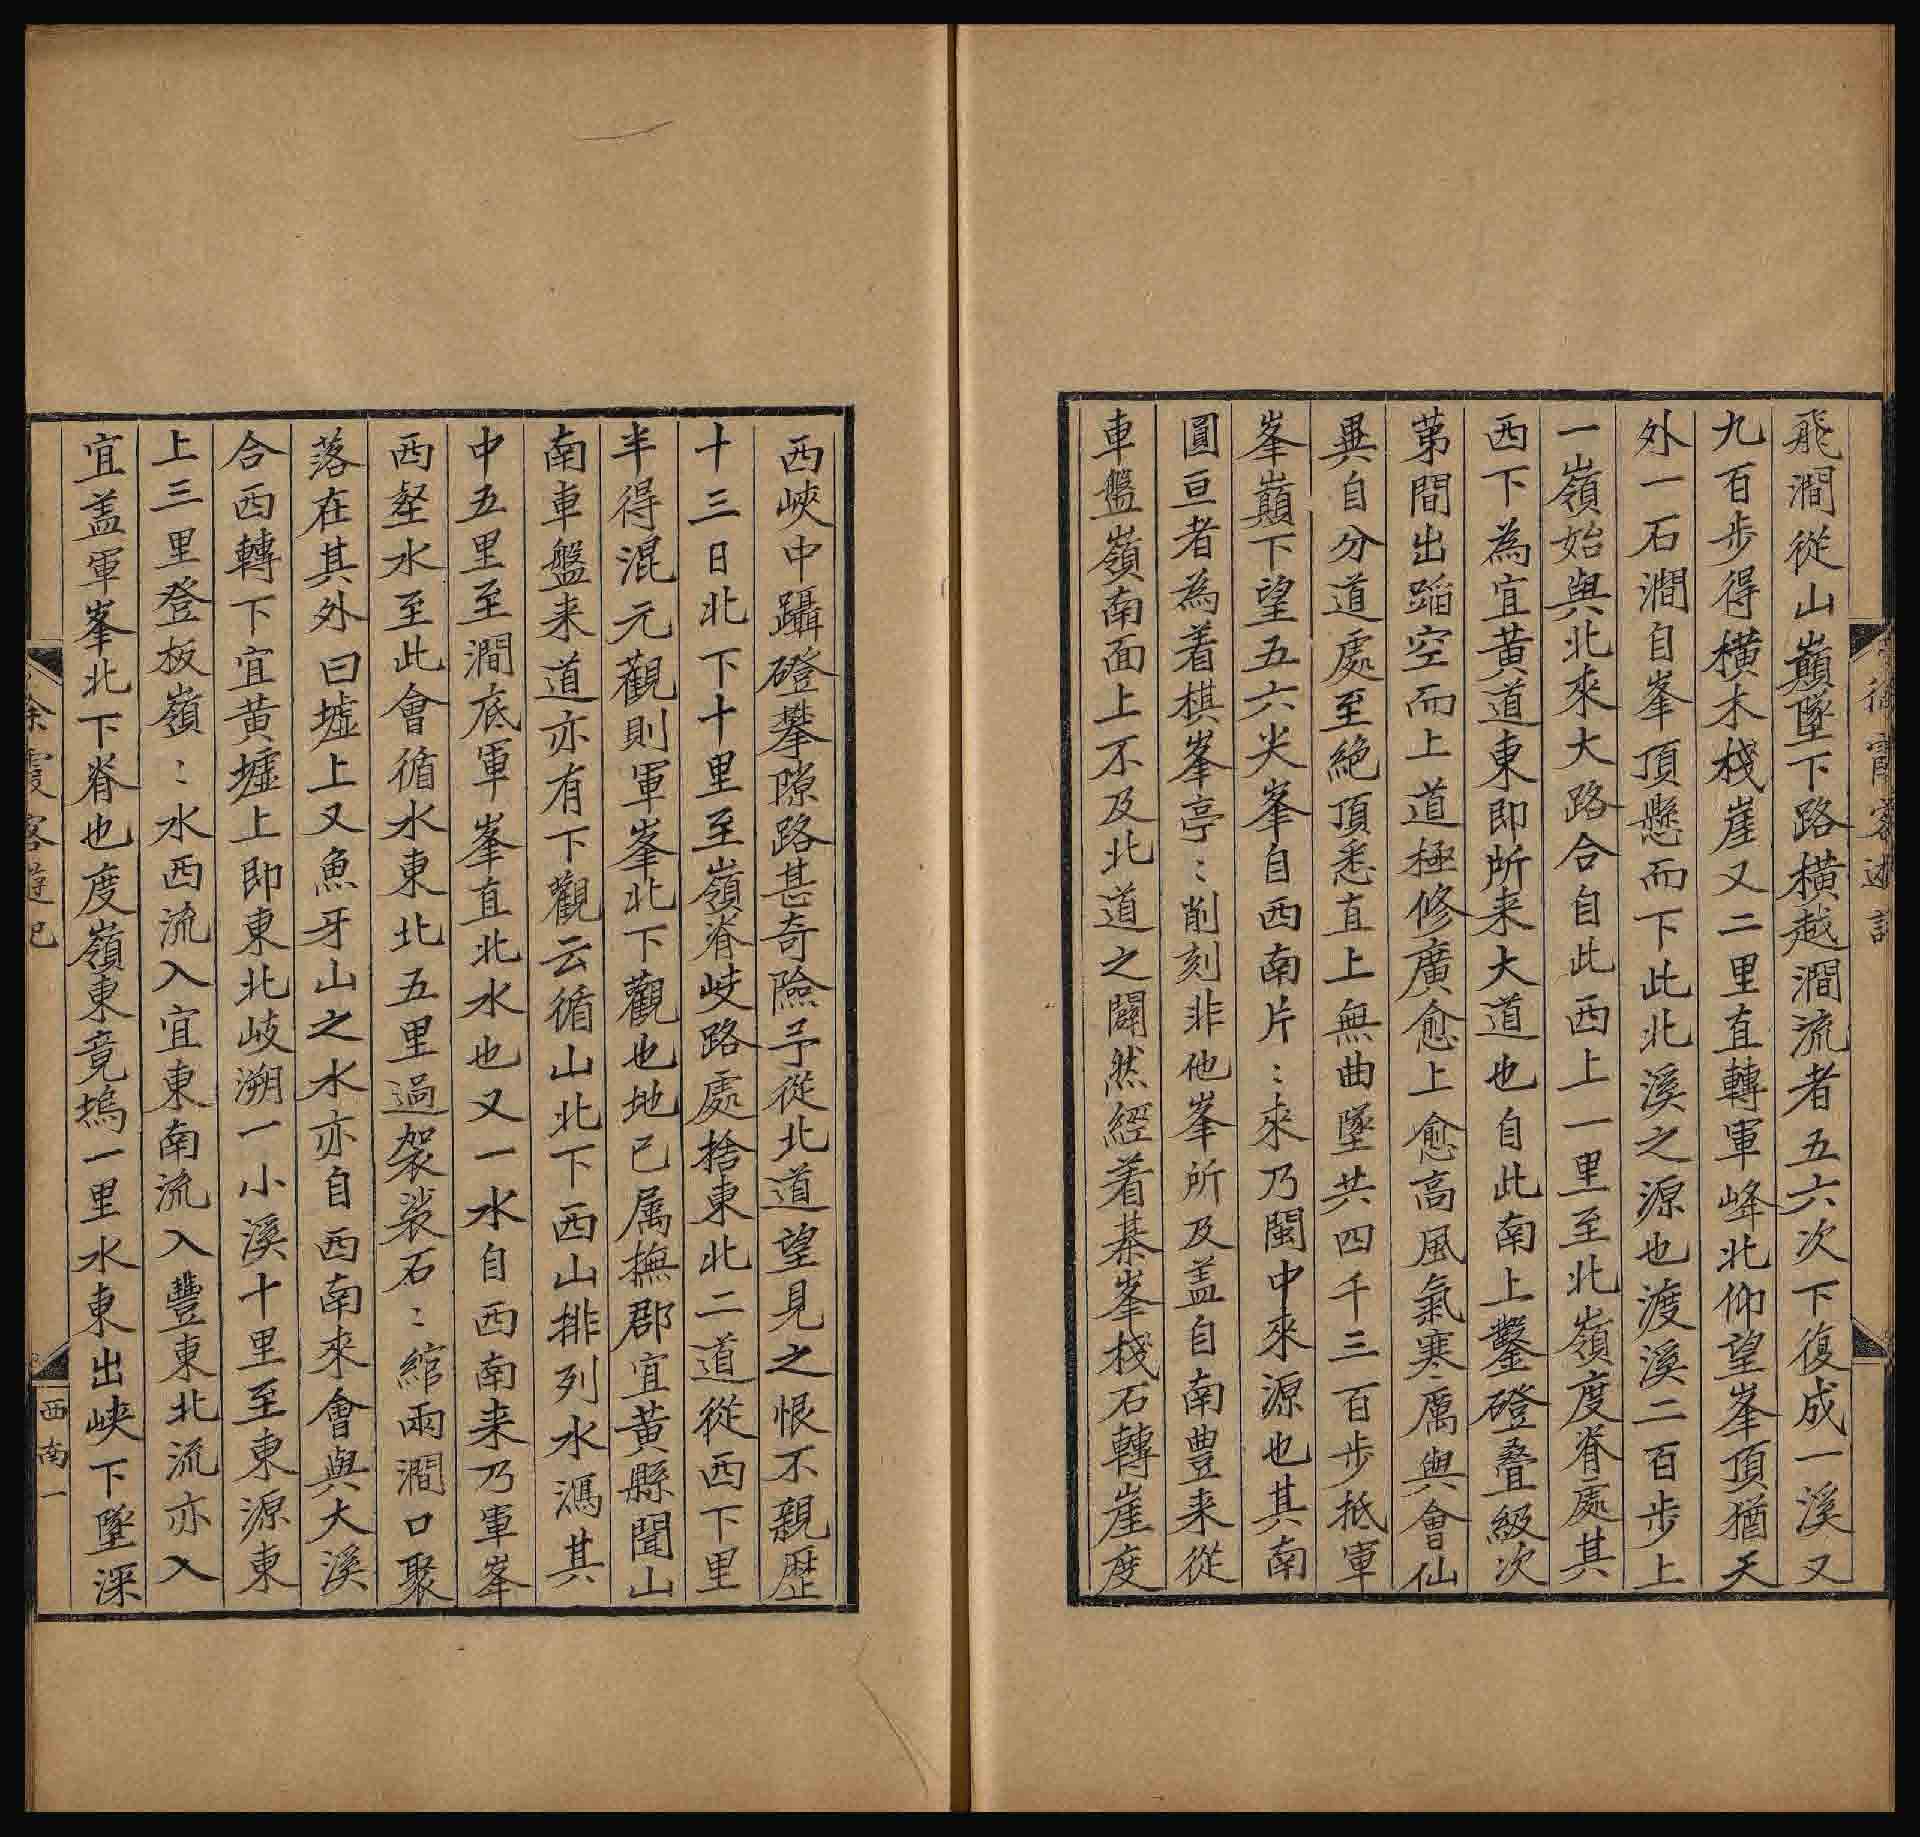 飛澗從山巔墜下路橫越澗流者五六次下復成一溪又
九百步得橫木棧崖又二里直轉軍峰北仰望峯頂猶天
外一石澗自峯頂懸而下此北溪之源也渡溪二百步上
一嶺始與北來大路合自此西上一里至北嶺度脊處其
西下為宜黃道東即所来大道也自此南上鑿磴叠級次
第間出蹈空而上道極修廣愈上愈高風氣寒厲與會仙
異自分道處至絕頂悉直上無曲墜共四千三百步抵軍
峯巔下望五六尖峯自西南片〻來乃閩中來源也其南
圓亘者為着棋峯亭〻削刻非他峯所及盖自南豊来從
車盤嶺南面上不及北道之闢然經着棊峯棧石轉崖度
西峽中躡磴攀隙路甚奇險予從北道望見之恨不親歷
十三日北下十里至嶺脊岐路處捨東北二道從西下里
半得混元觀則軍峯北下觀也地已属撫郡宜黃縣聞山
南車盤来道亦有下觀云循山北下西山排列水馮其
中五里至澗底軍峯直北水也又一水自西南来乃軍峯
西壑水至此會循水東北五里過袈裟石〻綰兩澗口聚
落在其外曰墟上又魚牙山之水亦自西南來會與大溪
合西轉下宜黃墟上即東北岐溯一小溪十里至東源東
上三里登板嶺〻水西流入宜東南流入豐東北流亦入
宜盖軍峯北下脊也度嶺東竟塢一里水東出峽下墜深
徐霞客遊記
西南一